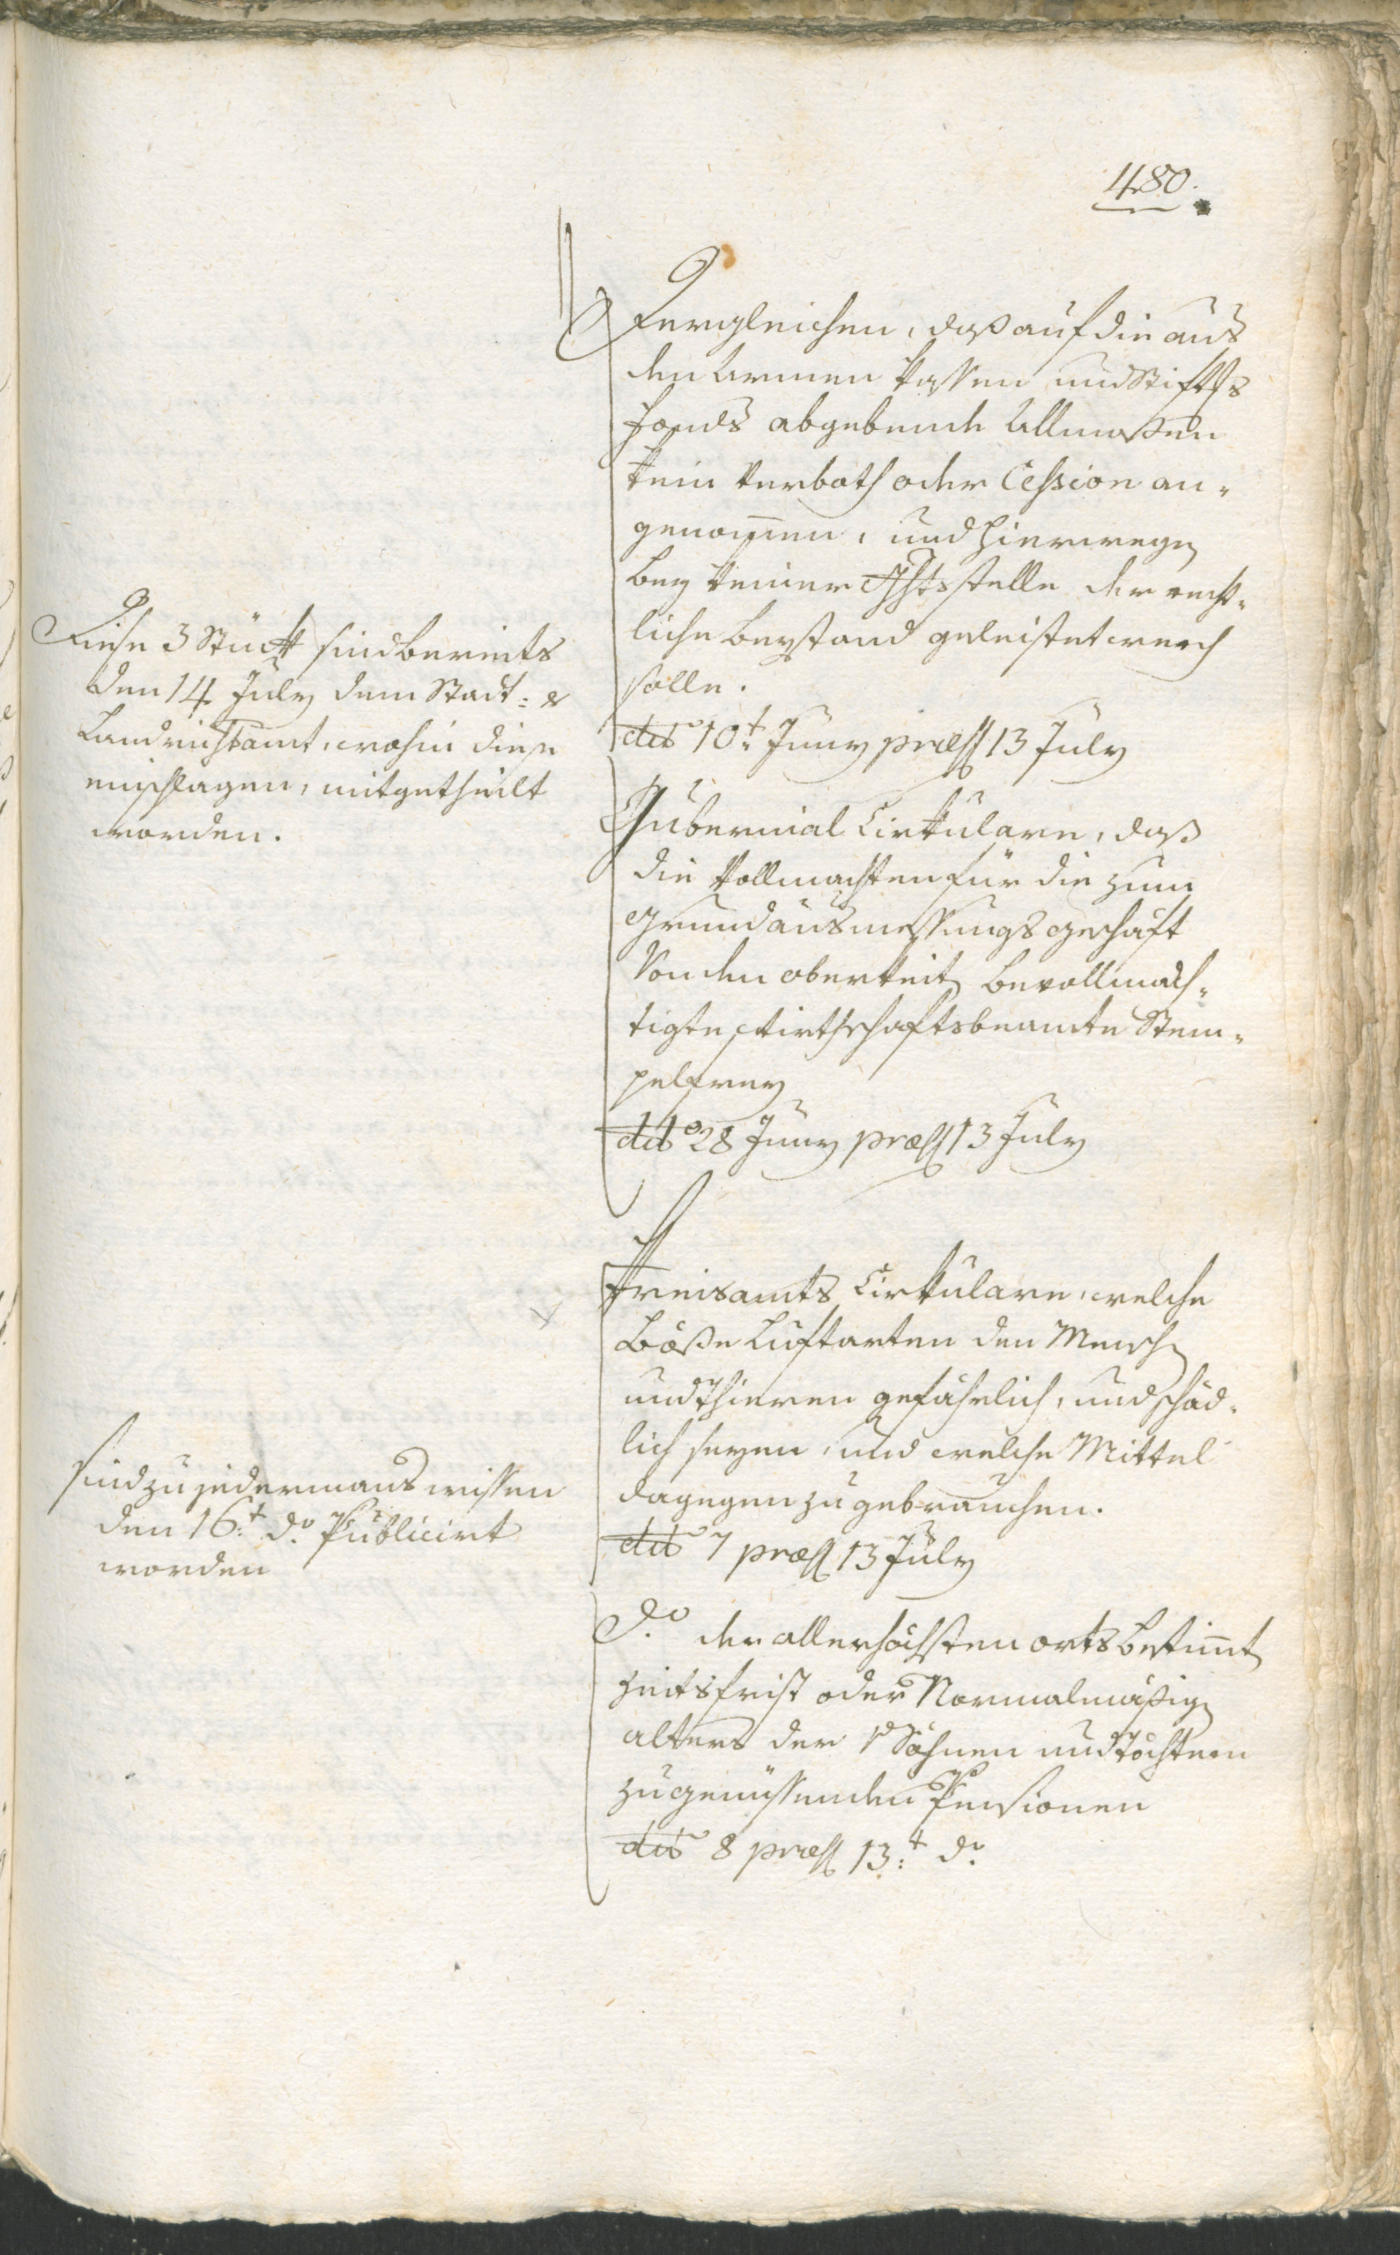 480.
Dergleichen, daß auf die aus
den Armen Kassen und Stifts
fonds abgebende Allmosen
kein Verboth oder Cession an-
genom̄en, und hierwegen
bey keiner Ghtsstelle der recht-
liche Beystand geleistet werden
solle.
dto 10t. Juny præs 13 July
Diese 3 Stück sind bereits
den 14 July dem Stadt= &
Landrichtamt, wohin diese
einschlagen, mitgetheilt
worden.
Gubernial Cirkulare, daß
die Vollmachten für die zum
Grundausmessungsgeschäft
Von den oberkeitn bevollmäch-
tigte Wirthschaftsbeamte Stem-
pelfrey
dto 28 Juny præs 13 July
Kreisamts Cirkulare, welche
Böße Luftarten den Menschen
und Thieren gefährlich, und schäd-
lich seyen, und welche Mittel
dagegen zu gebrauchen.
dto 7 præs 13 July
sind zu jedermans wissen
den 16t. do. Publicirt
worden
Do. der allerhöchsten orts bestim̄ten
Zeitsfrist oder Normalmäßigen
alters der Söhnen und Töchtern
zu genüssenden Pensionen
dto 8 præs 13t. do.